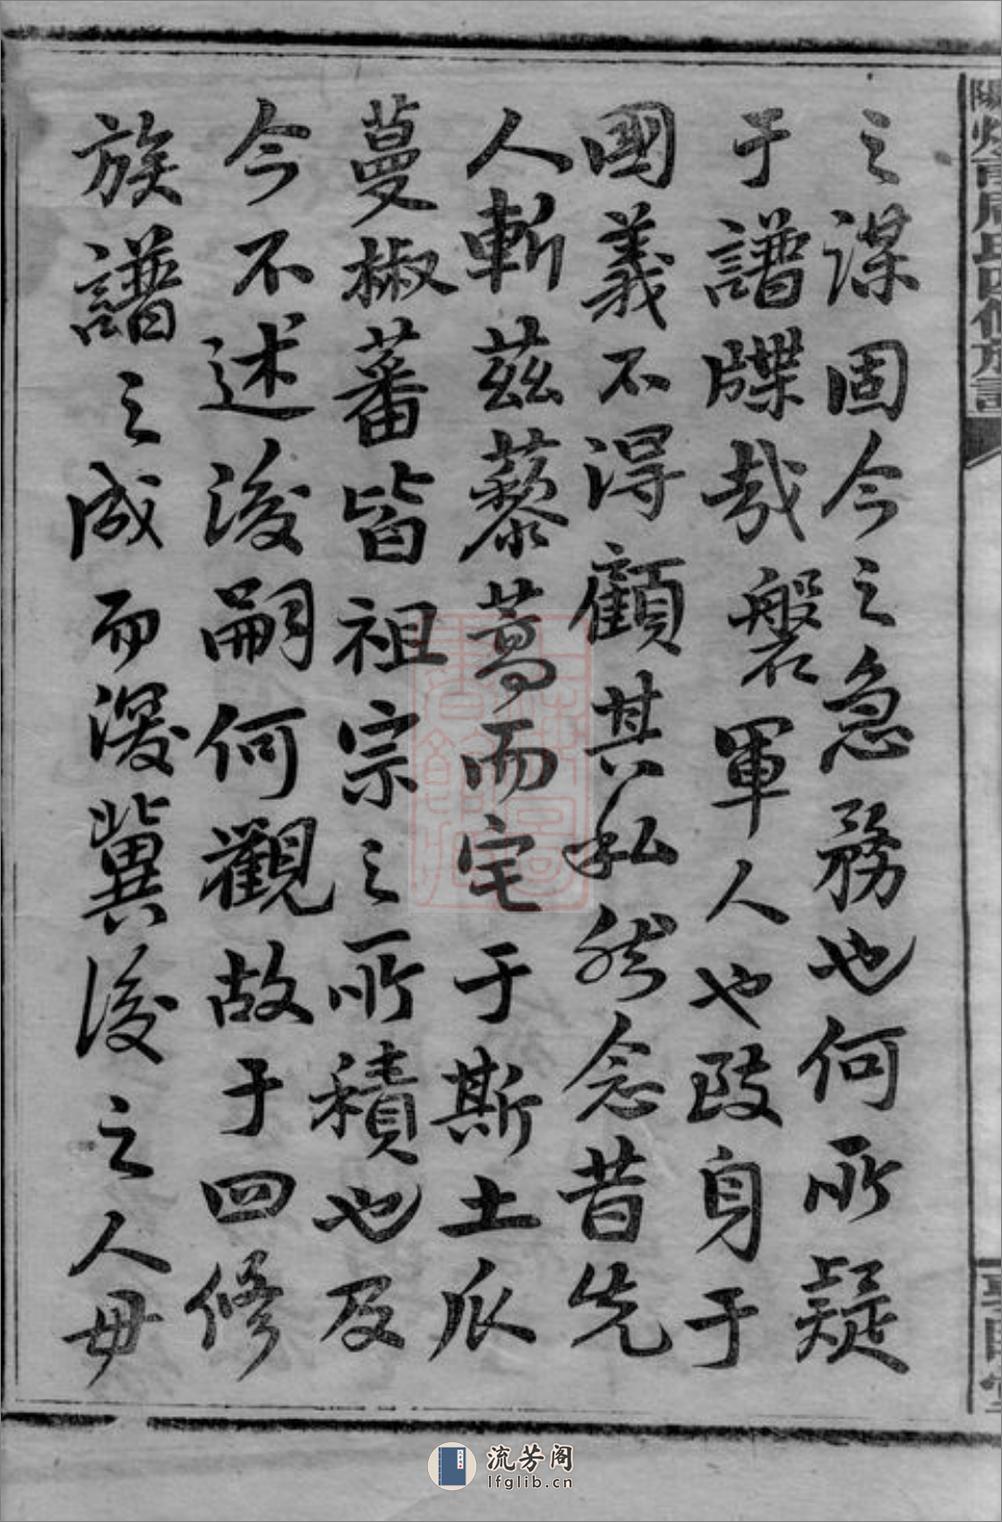 之謀固今之急務也何所疑
于譜牒哉磐軍人也致身于
國義不得顧其私然念昔先
人斬茲藜蒿而宅于斯土瓜
蔓椒蕃皆祖宗之所積也及
今不述後嗣何觀故于四修
族譜之成而深冀後之人毋
周氏四修族譜
流芳阁
lfglib.cn